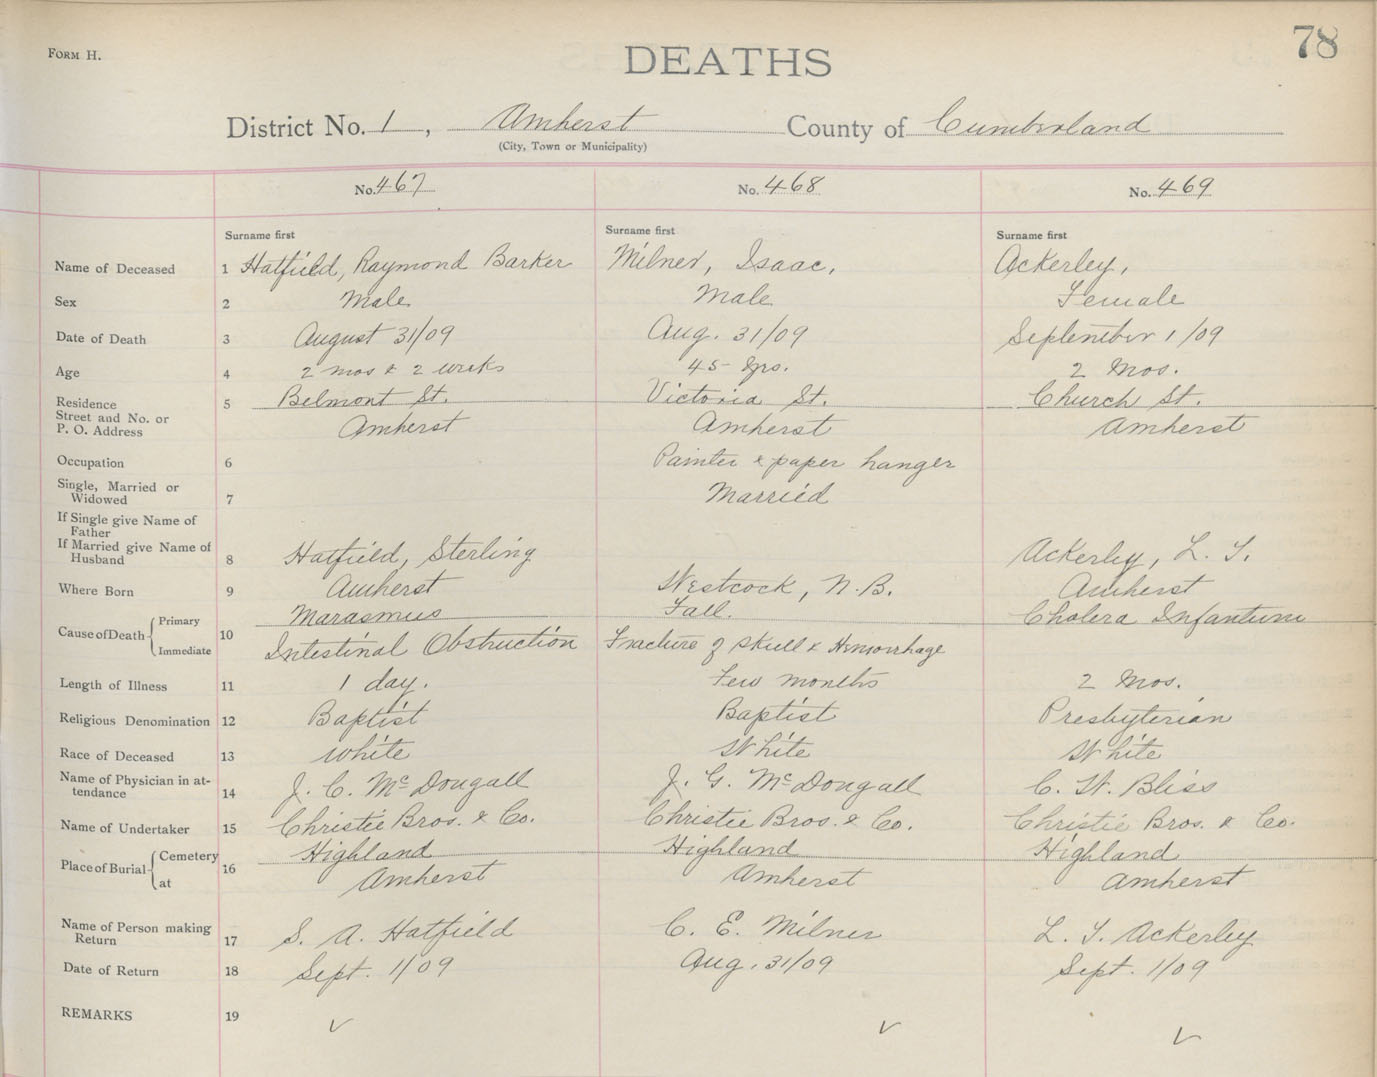 78
FORM H.
DEATHS
District No. 1, Amherst County of Cumberland
(City, Town or Municipality)
No. 467 No. 468 No. 469
Surname first Surname first Surname first
Name of Deceased 1 Hatfield, Raymond Barker Milner, Isaac, Ackerley,
Sex 2 Male Male Female
Date of Death 3 August 31/09 Aug. 31/09 September 1/09
Age 4 2 mos & 2 weeks 45 yrs. 2 Mos.
Residence 5 Belmont St. Victoria St. Church St.
Street and No. or
P. O. Address Amherst Amherst Amherst
Occupation 6 Painter & paper hanger
Single, Married or
Widowed 7 Married
If Single give Name of
Father
If Married give Name of
Husband 8 Hatfield, Sterling Ackerley, L. T.
Where Born 9 Amherst Westcock, N.B. Amherst
Cause of Death 10 Primary Marasmus Fall. Cholera Infantum
Immediate Intestinal Obstruction Fracture of skull & Hemorrhage
Length of Illness 11 1 day. Few months 2 Mos.
Religious Denomination 12 Baptist Baptist Presbyterian
Race of Deceased 13 White White White
Name of Physician in at-
tendance 14 J. C. McDougall J. G. McDougall C. W. Bliss
Name of Undertaker 15 Christie Bros. & Co. Christie Bros. & Co. Christie Bros. & Co.
Place of Burial 16 Cemetery Highland Highland Highland
at Amherst Amherst Amherst
Name of Person making
Return 17 S. A. Hatfield C. E. Milner L. T. Ackerley
Date of Return 18 Sept. 1/09 Aug. 31/09 Sept. 1/09
REMARKS 19 ✓ ✓ ✓